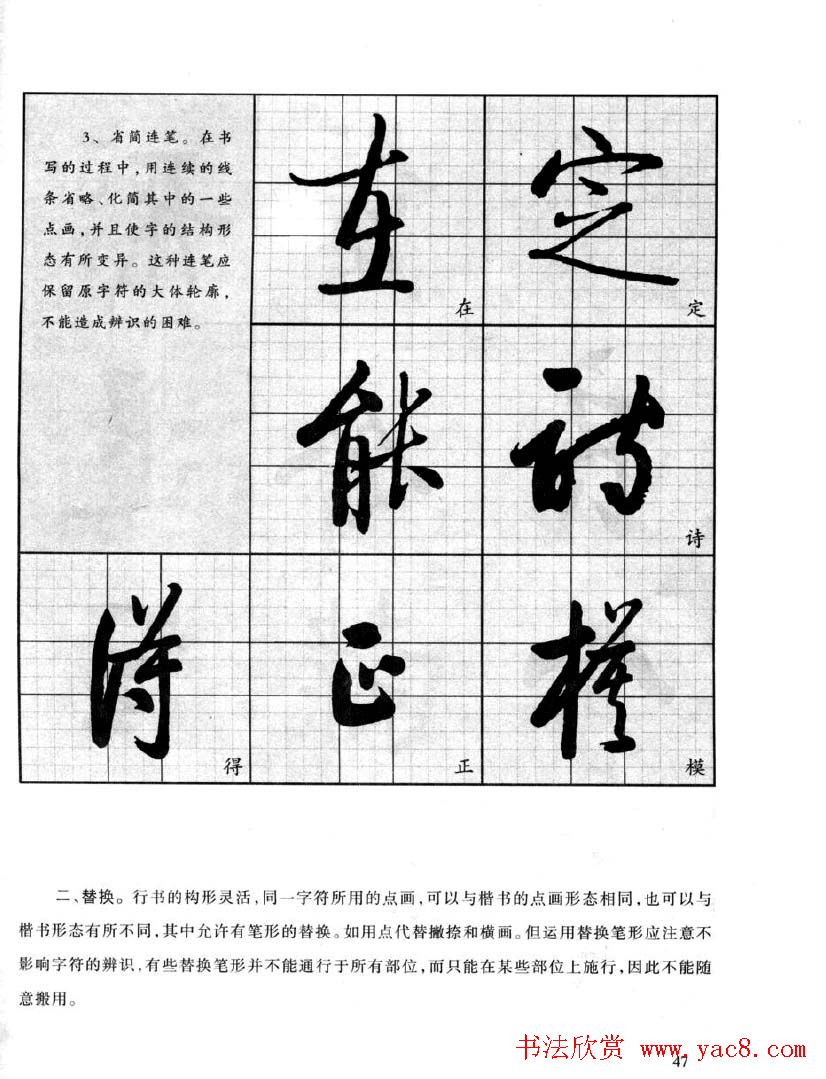 3、省简连笔。在书
写的过程中,用连续的线
条省略、化简其中的一些
点画,并且使字的结构形
态有所变异。这种连笔应
保留原字符的大体轮廓,
不能造成辨识的困难。
在 定
在 定
能 诗
诗
得 正 模
得 正 模
二、替换。行书的构形灵活,同一字符所用的点画,可以与楷书的点画形态相同,也可以与
楷书形态有所不同,其中允许有笔形的替换。如用点代替撇捺和横画。但运用替换笔形应注意不
影响字符的辨识,有些替换笔形并不能通行于所有部位,而只能在某些部位上施行,因此不能随
意搬用。
书法欣赏 www.yac8.com
47